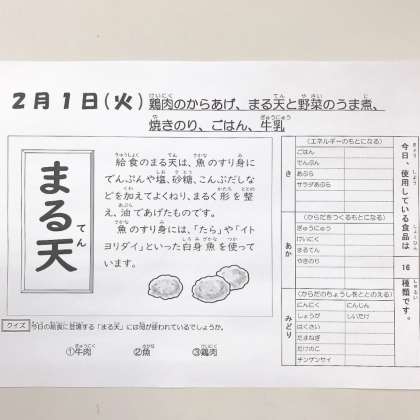 2月1日(火) 鶏肉のからあげ、まる天と野菜のうま煮、
焼きのり、ごはん、牛乳
まる天
給食のまる天は、魚のすり身に
でんぷんや塩、砂糖、こんぶだしな
どを加えてよくねり、まるく形を整
え、油であげたものです。
魚のすり身には、「たら」や「イト
ヨリダイ」といった白身魚を使って
います。
クイズ 今日の給食に登場する「まる天」には何が使われているでしょうか。
①牛肉 ②魚 ③鶏肉
今日、使用している食品は
16
種類です。
き
(エネルギーのもとになる)
ごはん
でんぷん
あぶら
サラダあぶら
あか
(からだをつくるもとになる)
ぎゅうにゅう
けいにく
まるてん
やきのり
みどり
(からだのちょうしをととのえる)
にんにく にんじん
しょうが しいたけ
はくさい
たまねぎ
たけのこ
チンゲンサイ